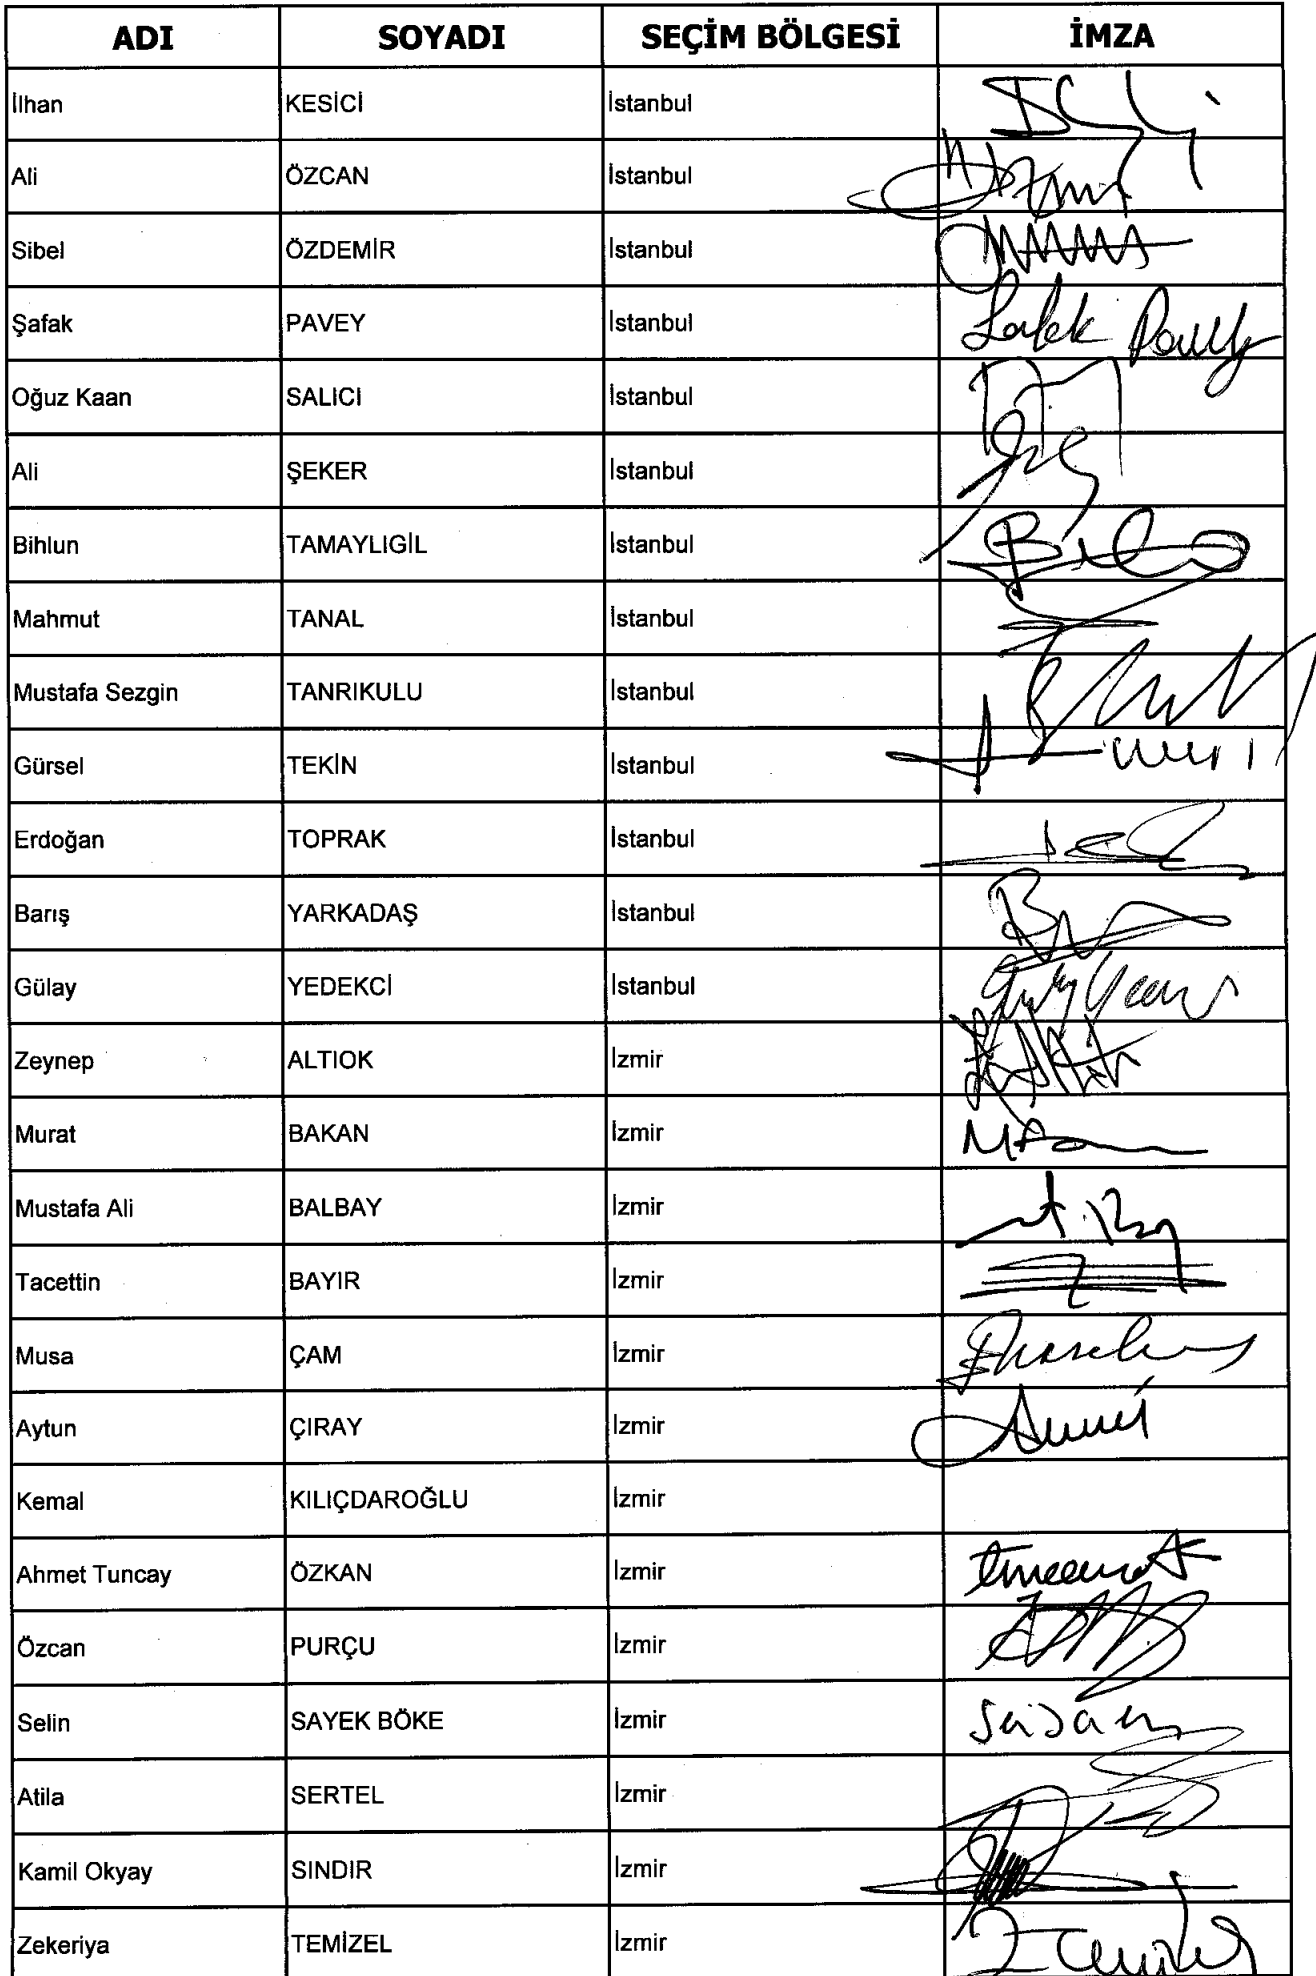 ADI SOYADI SEÇİM BÖLGESİ İMZA
İlhan KESİCİ İstanbul
Ali ÖZCAN İstanbul
Sibel ÖZDEMİR İstanbul
Şafak PAVEY İstanbul Şafak Pavey
Oğuz Kaan SALICI İstanbul
Ali ŞEKER İstanbul
Bihlun TAMAYLIGİL İstanbul
Mahmut TANAL İstanbul
Mustafa Sezgin TANRIKULU İstanbul
Gürsel TEKİN İstanbul
Erdoğan TOPRAK İstanbul
Barış YARKADAŞ İstanbul
Gülay YEDEKCİ İstanbul
Zeynep ALTIOK İzmir
Murat BAKAN İzmir
Mustafa Ali BALBAY İzmir
Tacettin BAYIR İzmir
Musa ÇAM İzmir
Aytun ÇIRAY İzmir
Kemal KILIÇDAROĞLU İzmir
Ahmet Tuncay ÖZKAN İzmir
Özcan PURÇU İzmir
Selin SAYEK BÖKE İzmir
Atila SERTEL İzmir
Kamil Okyay SINDIR İzmir
Zekeriya TEMİZEL İzmir